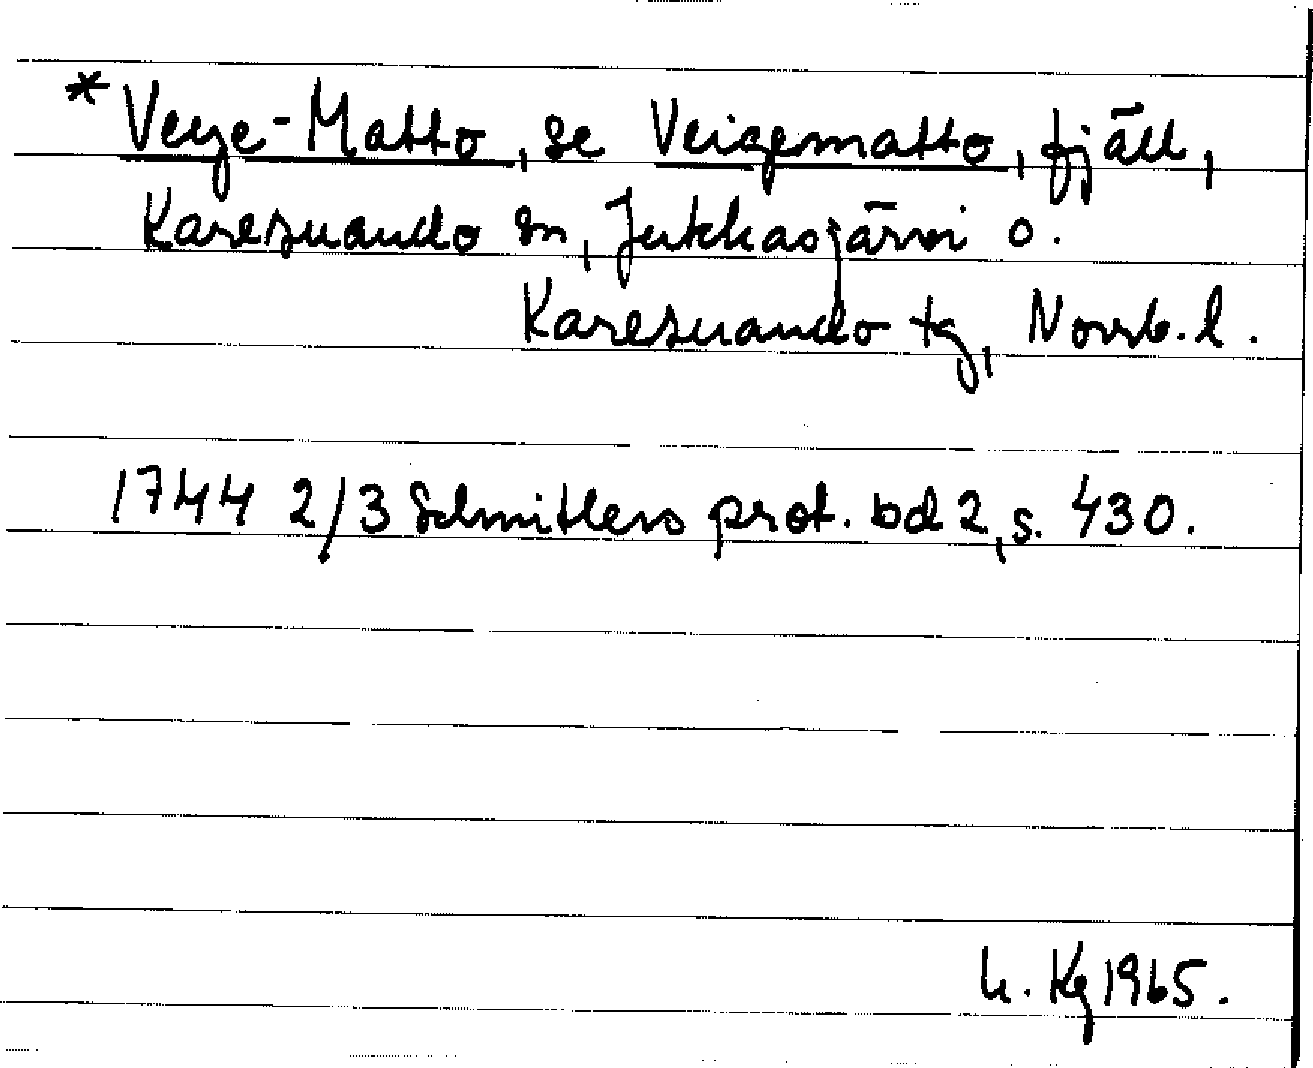 * Veye-Matto, se Veigematto, fjäll,
Karesuando sn, Jukkasjärvi o.
Karesuando tg, Norrb. l.
1744 2/3 Schnitlers prot. bd 2, s. 430.
h. Kg 1965.